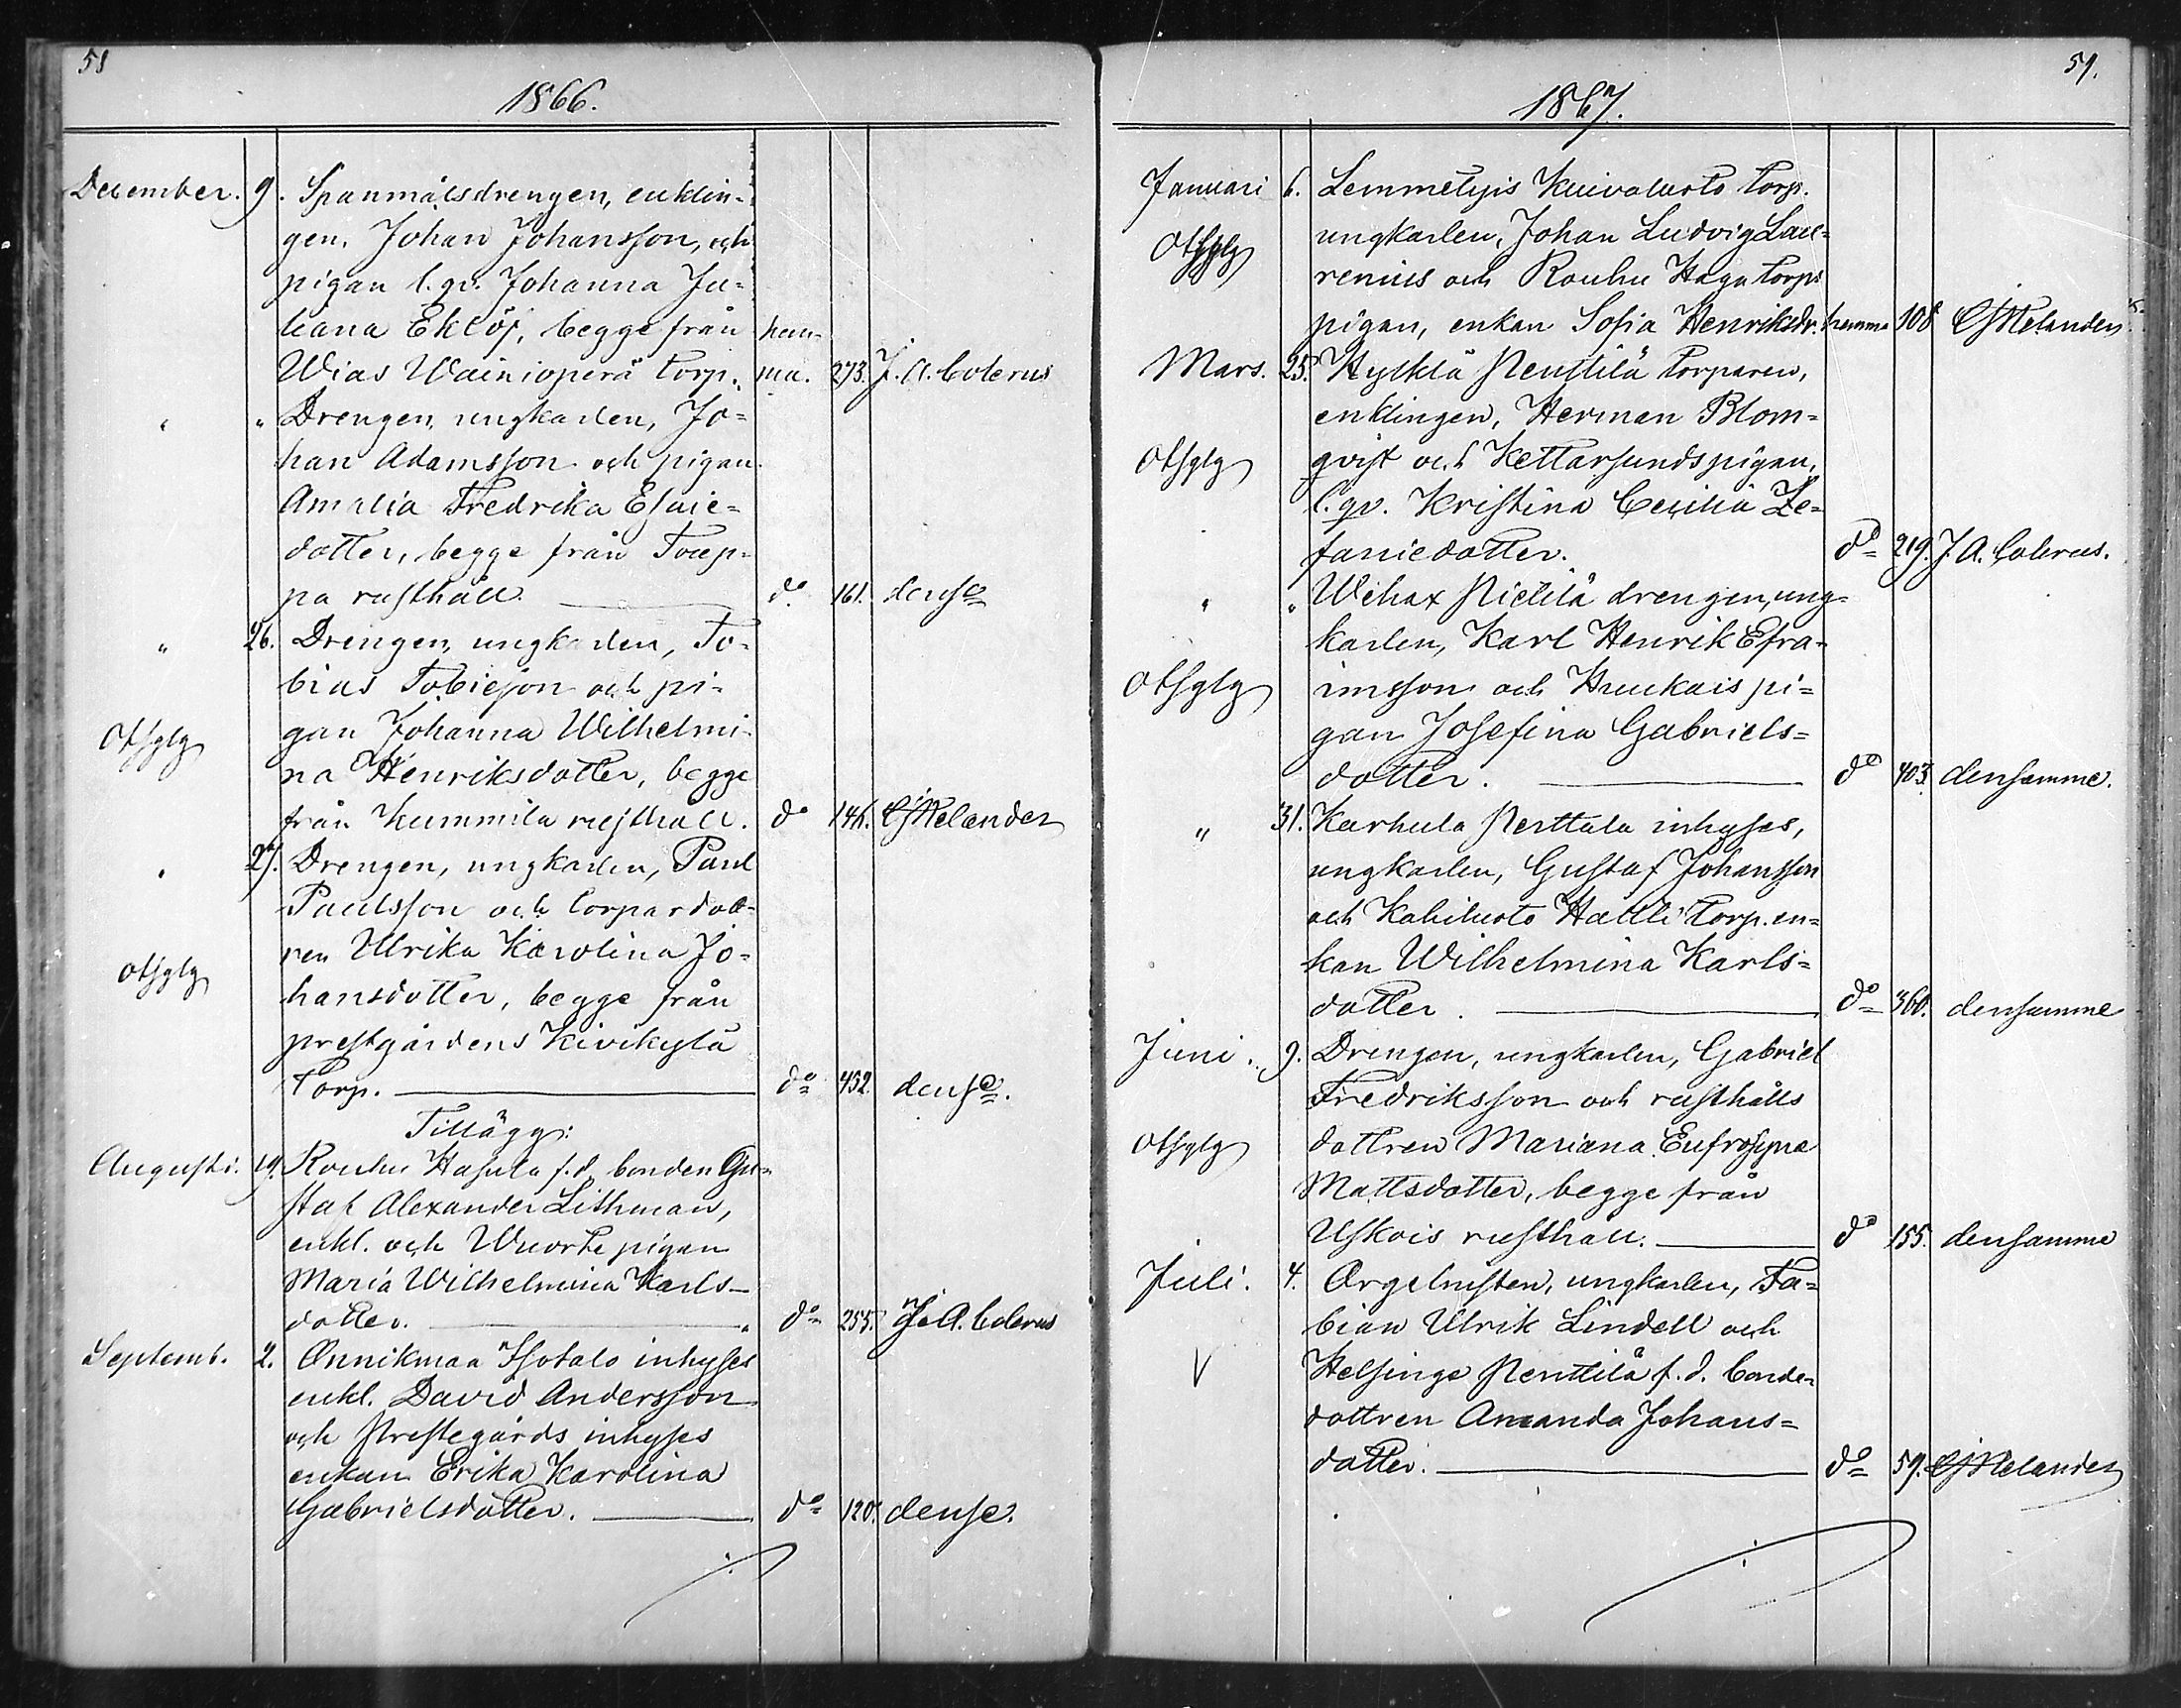 58
1866.
December. 9. Spanmålsdrengen, enklin-
gen, Johan Johansson, och
pigan l. qv. Johanna Ju-
liana Eklöf, begge från hem-
Wias Wainionperä torp. ma. 273. J. A. Colerus
" " Drengen, ungkarlen, Jo-
han Adamsson och pigan
Amalia Fredrika Esaie-
dotter, begge från Torp-
pa rusthåll. do 161. dense
" 26. Drengen, ungkarlen, To-
bias Tobiesson och pi-
Otfglg gan Johanna Wilhelmi-
na Henriksdotter, begge
från Kummila rusthåll. do 146. CJ Relander
" 27. Drengen, ungkarlen, Paul
Paulsson och torpardott-
ren Ulrika Karolina Jo-
Otfglg hansdotter, begge från
prestgårdens Kivikylä
torp. do 452. dense.
Tillägg:
Augusti. 19. Rouhu Hasula f. d. bonden Gu-
staf Alexander Lithman,
enkl. och Wuorte pigan
Maria Wilhelmina Karls-
dotter. do 255. J. A. Colerus
Septemb. 2. Onnikmaa Isotalo inhyses
enkl. David Andersson
och Prestegårds inhyses
enkan Erika Karolina
Gabrielsdotter. do 120. dense.
59.
1867.
Januari 6. Lemmetyis Kuivaluoto torp.
Otfglg ungkarlen, Johan Ludvig Lau-
renius och Rouhu Haga torps
pigan, enkan Sofia Henriksdr. hemma 108 CJ Relander
Mars. 25. Hylklä Penttilä torparen,
enklingen, Herman Blom-
Otfglg qvist och Kettarsunds pigan,
l. qv. Kristina Cecilia Ze-
faniedotter. do 219. J. A. Colerus.
" " Wehax Pietilä drengen, ung-
karlen, Karl Henrik Efra-
Otfglg imsson och Kuukais pi-
gan Josefina Gabriels-
dotter. do 403. densamme.
" 31. Karhula Perttala inhyses,
ungkarlen, Gustaf Johansson
och Kahiluoto Hattli torp. en-
kan Wilhelmina Karls-
dotter. do 360. densamme
Juni. 9. Drengen, ungkarlen, Gabriel
Fredriksson och rusthålls
Otfglg dottren Mariana Eufrosyna
Mattsdotter, begge från
Uskois rusthåll. do 155. densamme
Juli. 4. Orgelnisten, ungkarlen, Fa-
bian Ulrik Lindell och
V Helsinge Penttilä f. d. bonde-
dottren Amanda Johans-
dotter. do 59. CJ Relander